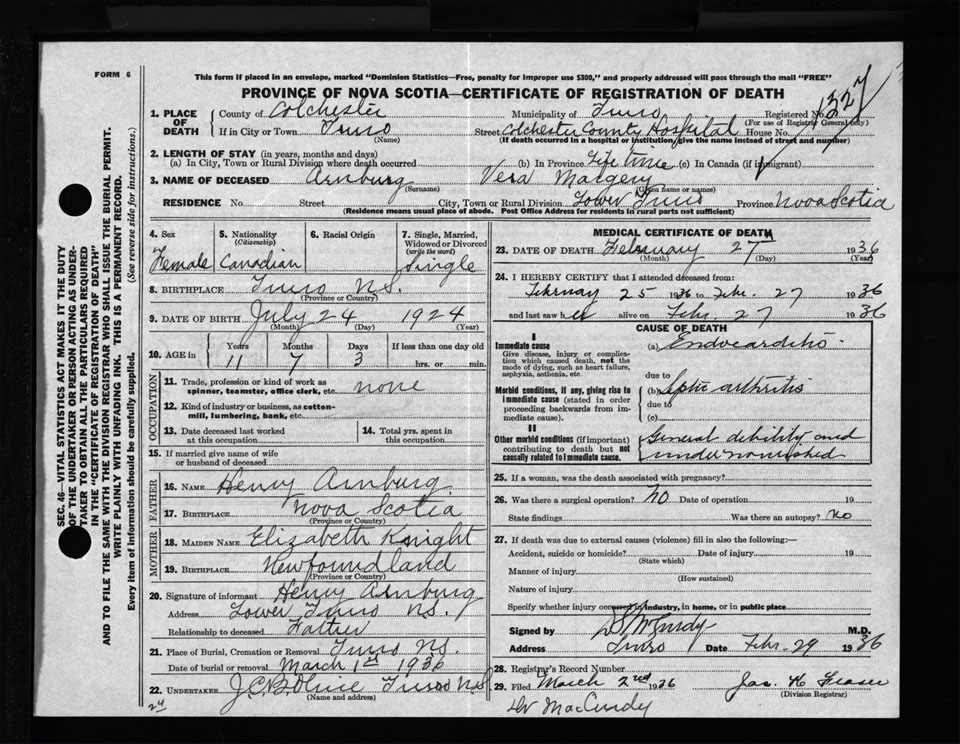 FORM 6
This form if placed in an envelope, marked "Dominion Statistics—Free, penalty for improper use $300," and properly addressed will pass through the mail "FREE"
PROVINCE OF NOVA SCOTIA—CERTIFICATE OF REGISTRATION OF DEATH
1. PLACE OF DEATH County of Colchester Municipality of Truro Registered No. 1327
(For use of Registrar General only)
If in City or Town Truro Street Colchester County Hospital House No.
(Name) (If death occurred in a hospital or institution, give the name instead of street and number)
2. LENGTH OF STAY (in years, months and days)
(a) In City, Town or Rural Division where death occurred (b) In Province Life time (c) In Canada (if immigrant)
3. NAME OF DECEASED Arnburg Vera Margery
(Surname) (Given name or names)
RESIDENCE No. Street City, Town or Rural Division Lower Truro Province Nova Scotia
(Residence means usual place of abode. Post Office Address for residents in rural parts not sufficient)
4. Sex Female
5. Nationality (Citizenship) Canadian
6. Racial Origin
7. Single, Married, Widowed or Divorced (write the word) Single
8. BIRTHPLACE Truro N.S.
(Province or Country)
9. DATE OF BIRTH July 24 1924
(Month) (Day) (Year)
10. AGE in Years 11 Months 7 Days 3 If less than one day old hrs. or min.
OCCUPATION
11. Trade, profession or kind of work as spinner, teamster, office clerk, etc. none
12. Kind of industry or business, as cotton-mill, lumbering, bank, etc.
13. Date deceased last worked at this occupation
14. Total yrs. spent in this occupation
15. If married give name of wife or husband of deceased
FATHER
16. NAME Henry Arnburg
17. BIRTHPLACE Nova Scotia
(Province or Country)
MOTHER
18. MAIDEN NAME Elizabeth Knight
19. BIRTHPLACE Newfoundland
(Province or Country)
20. Signature of informant Henry Arnburg
Address Lower Truro N.S.
Relationship to deceased Father
21. Place of Burial, Cremation or Removal Truro N.S.
Date of burial or removal March 1st 1936
22. UNDERTAKER J.C.B. Olive Truro N.S.
(Name and address)
24
MEDICAL CERTIFICATE OF DEATH
23. DATE OF DEATH February 27 1936
(Month) (Day) (Year)
24. I HEREBY CERTIFY that I attended deceased from:
Februay 25 1936 to Febr. 27 1936
and last saw her alive on Febr. 27 1936
CAUSE OF DEATH
I
Immediate cause
Give disease, injury or complication which caused death, not the mode of dying, such as heart failure, asphyxia, asthenia, etc.
(a) Endocarditis
due to
Morbid conditions, if any, giving rise to immediate cause (stated in order proceeding backwards from immediate cause)
(b) Septic arthritis
due to
(c)
II
Other morbid conditions (if important) contributing to death but not causally related to immediate cause
General debility and
undernourished
25. If a woman, was the death associated with pregnancy?
26. Was there a surgical operation? No Date of operation 19
State findings Was there an autopsy? No
27. If death was due to external causes (violence) fill in also the following:—
Accident, suicide or homicide? Date of injury 19
(State which)
Manner of injury
(How sustained)
Nature of injury
Specify whether injury occurred in industry, in home, or in public place
Signed by McCurdy M.D.
Address Truro Date Febr. 29 1936
28. Registrar's Record Number
29. Filed March 2nd 1936 Jas. H Fraser
(Division Registrar)
Dr MacCurdy
SEC. 46—VITAL STATISTICS ACT MAKES IT THE DUTY
OF THE UNDERTAKER OR PERSON ACTING AS UNDER-
TAKER TO OBTAIN ALL THE PARTICULARS REQUIRED
IN THE "CERTIFICATE OF REGISTRATION OF DEATH"
AND TO FILE THE SAME WITH THE DIVISION REGISTRAR WHO SHALL ISSUE THE BURIAL PERMIT.
WRITE PLAINLY WITH UNFADING INK. THIS IS A PERMANENT RECORD.
Every item of information should be carefully supplied. (See reverse side for instructions.)